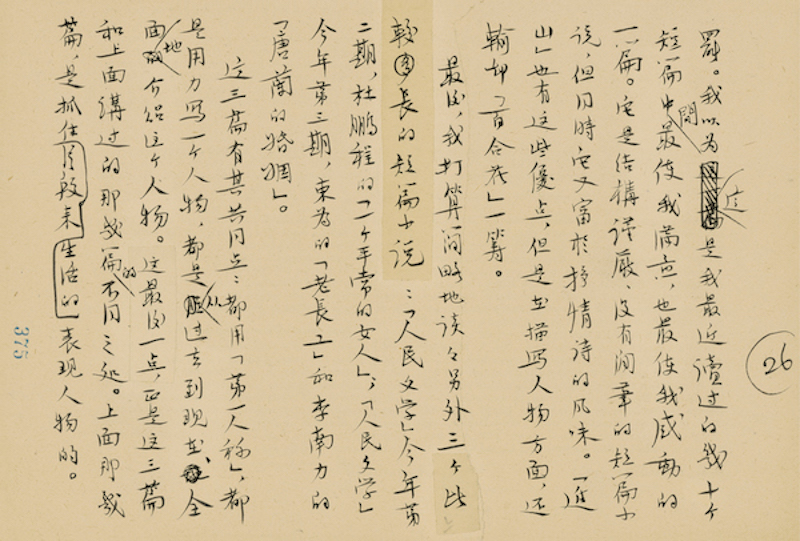 26
罷。我以为这是我最近讀过的幾十个
短篇中间最使我满意,也最使我感動的
一篇。它是结構谨嚴、没有闲筆的短篇小
说,但同時它又富於抒情诗的风味。「進
山」也有这些優点,但是在描写人物方面,还
输却「百合花」一筹。
最後,我打算简略地谈々另外三个比
較長的短篇小说:「人民文学」今年第
二期,杜鹏程的「一个平常的女人」;「人民文学」
今年第三期,東为的「老長工」和李南力的
「唐蘭的婚姻」。
这三篇有其共同点:都用「第一人称」,都
是用力写一个人物,都是从过去到现在、全
面地介绍这个人物。这最後一点,正是这三篇
和上面講过的那幾篇的不同之处。上面那幾
篇,是抓住片段来生活的表现人物的。
375